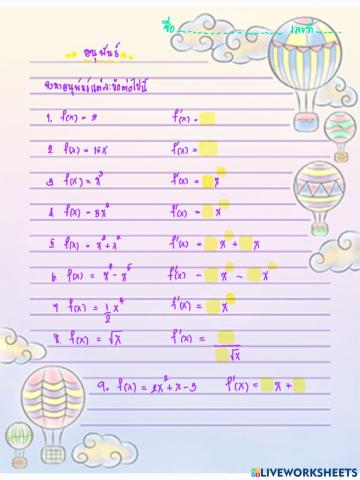 ชื่อ เลขที่
อนุพันธ์
จงหาอนุพันธ์แต่ละข้อต่อไปนี้
1. f(x) = 9 f'(x) =
2. f(x) = 15x f'(x) =
3. f(x) = x³ f'(x) = x
4. f'(x) = x
5. f'(x) = x + x
6. f'(x) = x - x
7. f(x) = 1/2 x⁴ f'(x) = x
8. f(x) = √x f'(x) = √x
9. f(x) = 2x² + x - 3 f'(x) = x +
LIVEWORKSHEETS